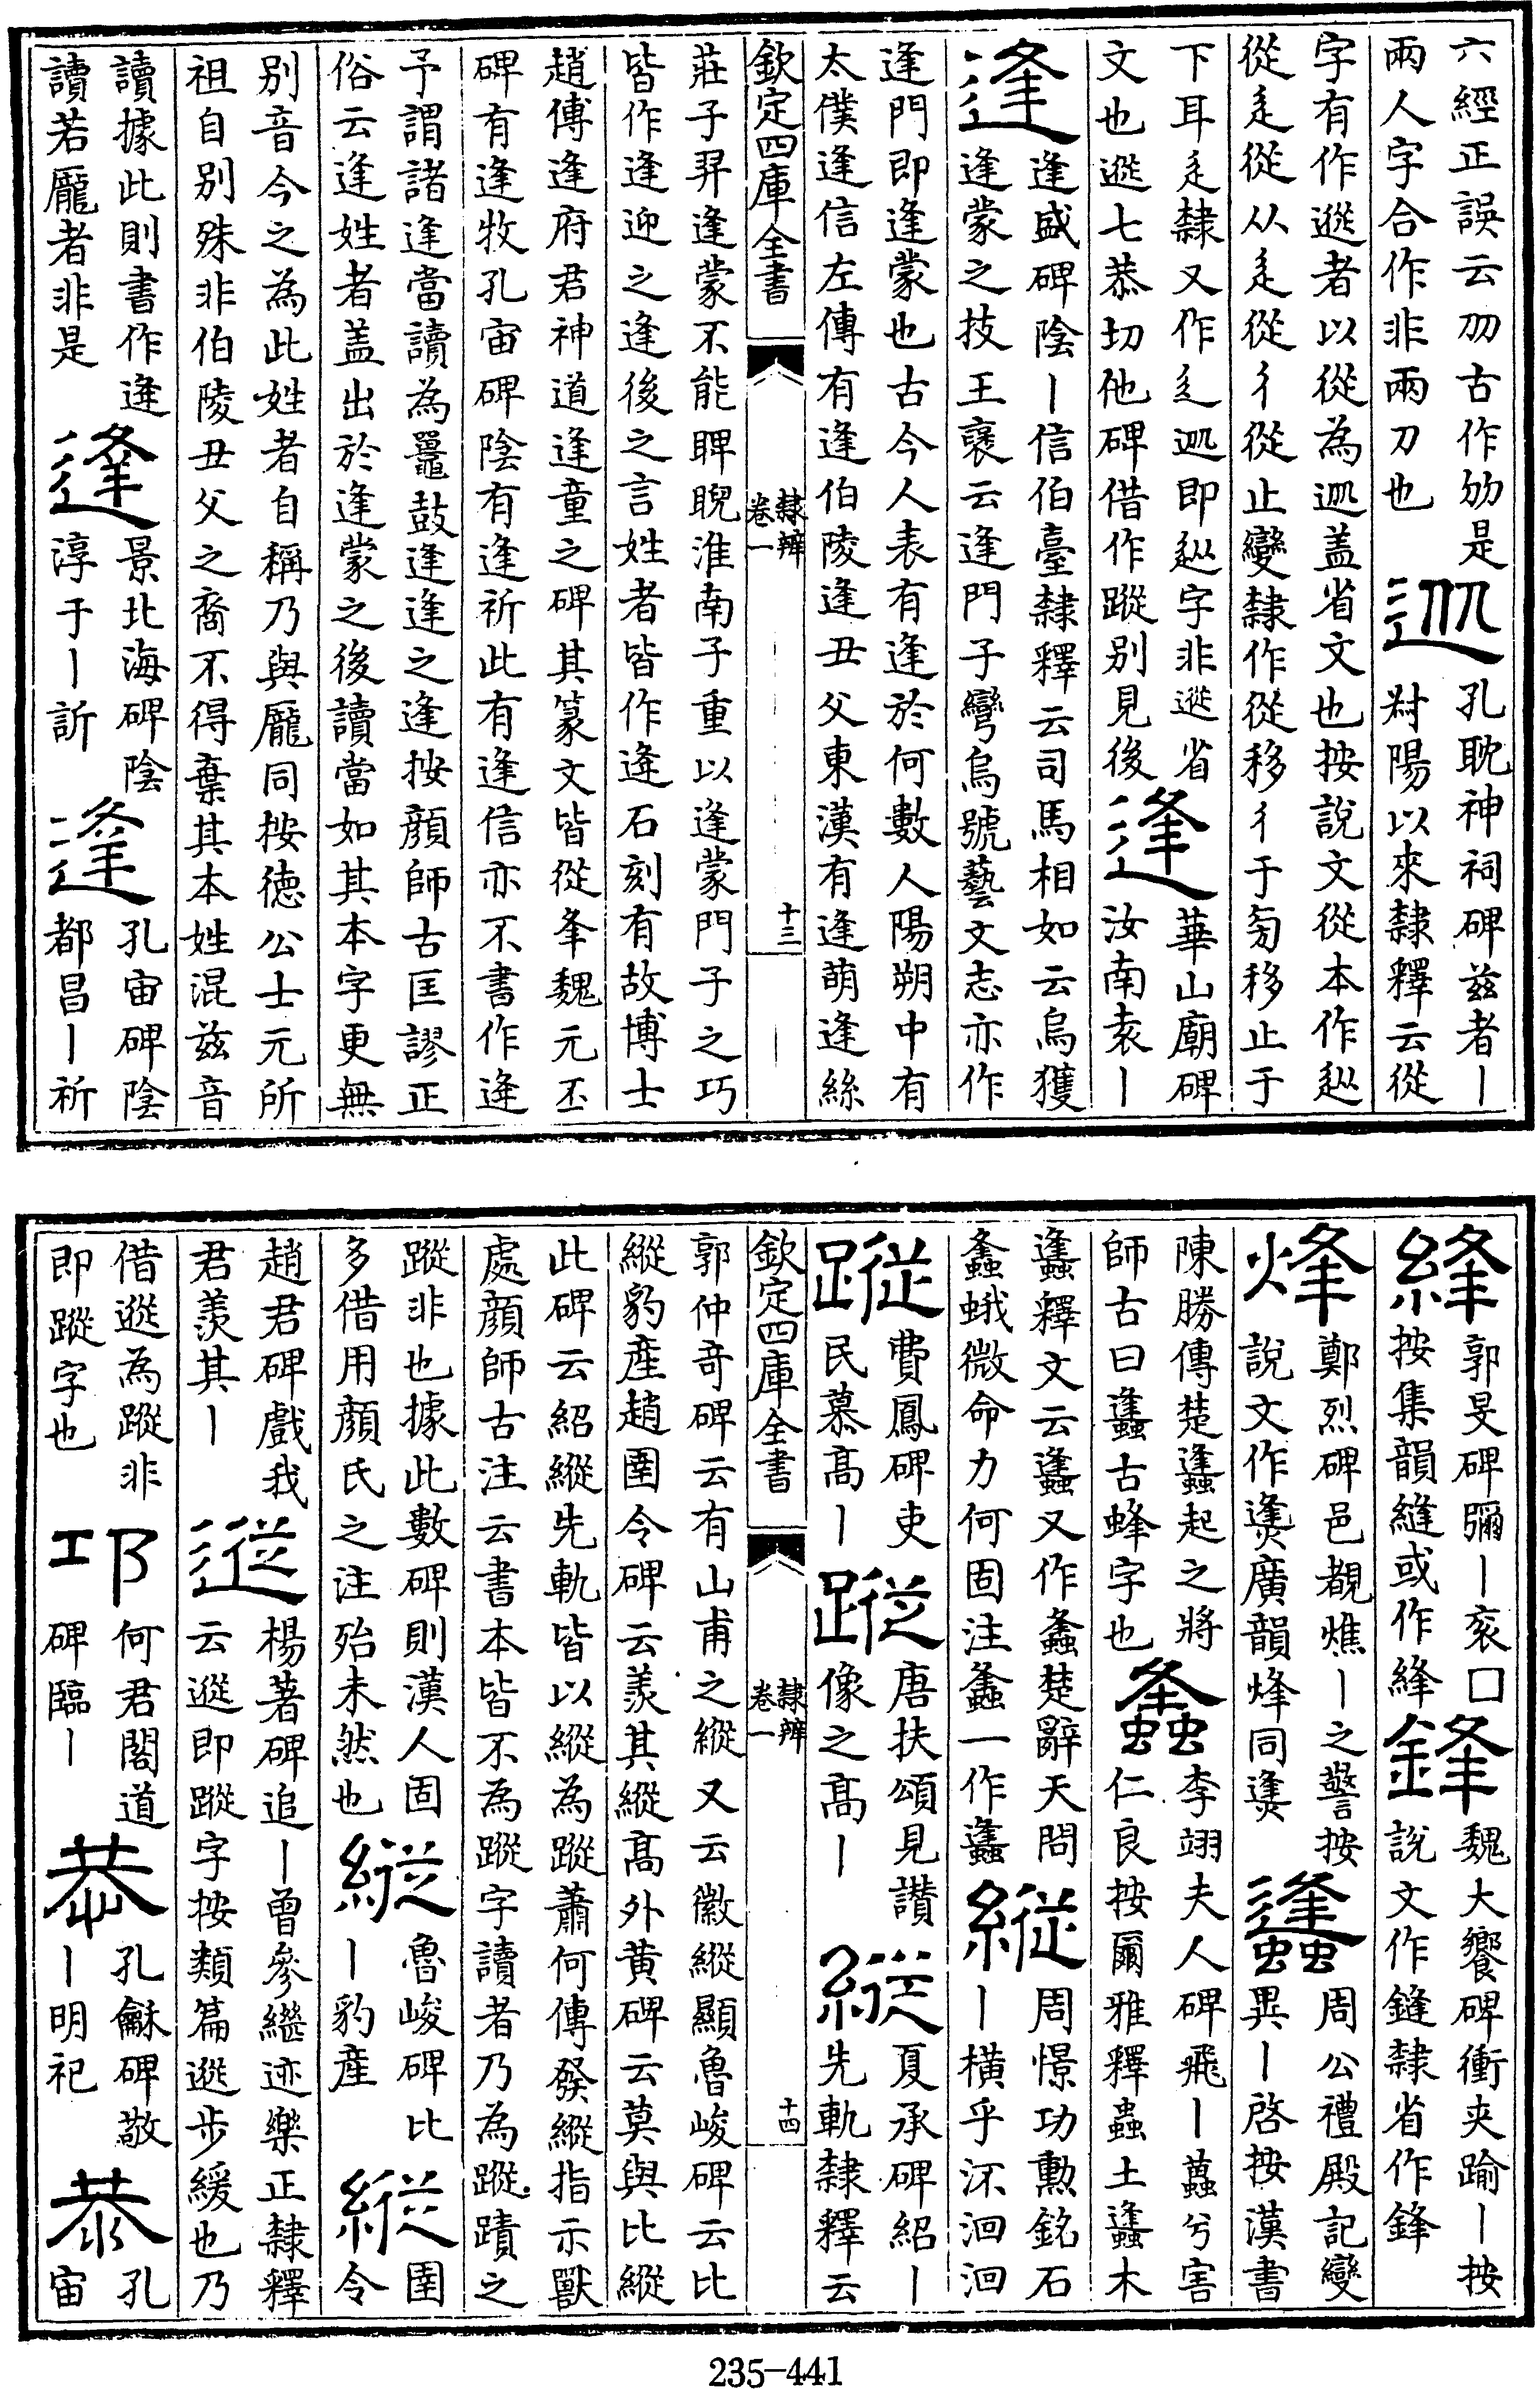 六經正誤云刅古作刱是
兩人字合作非兩刀也
孔耽神祠碑兹者丨
陽以來隸釋云從
字有作遜者以從為 盖省文也按說文從本作
從辵從从辵從彳從止變隸作從移彳于旁移止于
下耳辵隸又作辶 即 字非 省
文也 七恭切他碑借作蹤别見後
逢
華山廟碑
汝南袁丨
逢
逢盛碑陰丨信伯臺隸釋云司馬相如云烏獲
逢蒙之技王褒云逢門子彎烏號藝文志亦作
逢門即逢蒙也古今人表有逢於何數人陽朔中有
太僕逢信左傳有逢伯陵逢丑父東漢有逢萌逢絲
欽定四庫全書
隸辨
卷一
十三
莊子羿逢蒙不能睥睨淮南子重以逢蒙門子之巧
皆作逢迎之逢後之言姓者皆作逄石刻有故博士
趙傅逢府君神道逢童之碑其篆文皆從夆魏元丕
碑有逢牧孔宙碑陰有逢祈此有逢信亦不書作逄
予謂諸逢當讀為鼉鼓逢逢之逢按顔師古匡謬正
俗云逢姓者盖出於逢蒙之後讀當如其本字更無
别音今之為此姓者自稱乃與龐同按徳公士元所
祖自别殊非伯陵丑父之裔不得棄其本姓混兹音
讀據此則書作逄
讀若龐者非是
逢
景北海碑陰
淳于丨訢
逢
孔宙碑陰
都昌丨祈
縫
郭旻碑彌丨衮囗
按集韻縫或作絳
鋒
魏大饗碑衝夾踰丨按
說文作鏠隸省作鋒
烽
鄭烈碑邑覩燋丨之警按
說文作㷭廣韻烽同㷭
蠭
周公禮殿記變
異丨啓按漢書
陳勝傳楚蠭起之將
師古曰蠭古蜂字也
螽
李翊夫人碑飛丨蠚兮害
仁良按爾雅釋蟲土蠭木
蠭釋文云蠭又作螽楚辭天問
螽蛾微命力何固注螽一作蠭
縱
周憬功勳銘石
丨横乎沠洄洄
蹤
費鳳碑吏
民慕高丨
蹤
唐扶頌見讃
像之高丨
縱
夏承碑紹丨
先軌隸釋云
欽定四庫全書
隸辨
卷一
十四
郭仲奇碑云有山甫之縱又云徽縱顯魯峻碑云比
縱豹産趙圉令碑云羡其縱高外黄碑云莫與比縱
此碑云紹縱先軌皆以縱為蹤蕭何傳發縱指示獸
處顔師古注云書本皆不為蹤字讀者乃為蹤蹟之
蹤非也據此數碑則漢人固
多借用顔氏之注殆未然也
縱
魯峻碑比
丨豹産
縱
圉令
趙君碑戲我
君羡其丨
楊著碑追丨曾參繼迹樂正隸釋
云 即蹤字按類篇 步緩也乃
借 為蹤非
即蹤字也
邛
何君閣道
碑臨丨
恭
孔龢碑敬
丨明祀
恭
孔
宙
235-441